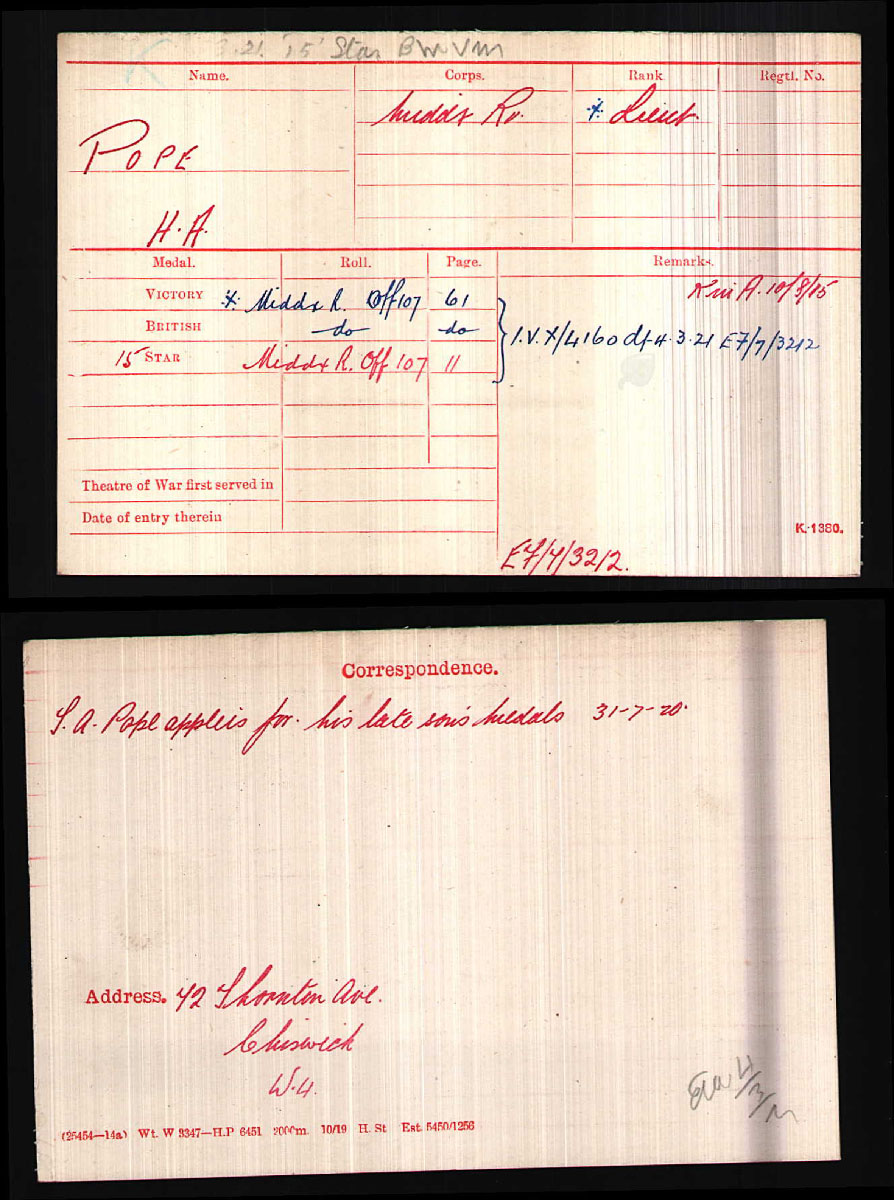 3.21. 15' Star BWVM
Name. Corps. Rank Regtl. No.
Middx R. * Lieut.
POPE
H.A.
Medal. Roll. Page. Remarks.
VICTORY * Middx R. Off 107 61 K in A. 10/3/15
BRITISH do do I.V.X/4160 df 4.3.21 E7/7/3212
15 STAR Middx R. Off 107 11
Theatre of War first served in
Date of entry therein
K. 1380.
E7/7/3212.
Correspondence.
S. A. Pope appleis for his late son's medals 31-7-20.
Address. 42 Thornton Ave.
Chiswick
W.4.
(25454—14a) Wt. W 3347—H.P 6451 2000m. 10/19 H. St Est. 5450/1256